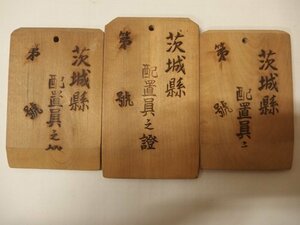 茨城縣
配置員之
第 號
茨城縣
配置員之證
第 號
茨城縣
配置員
第 號